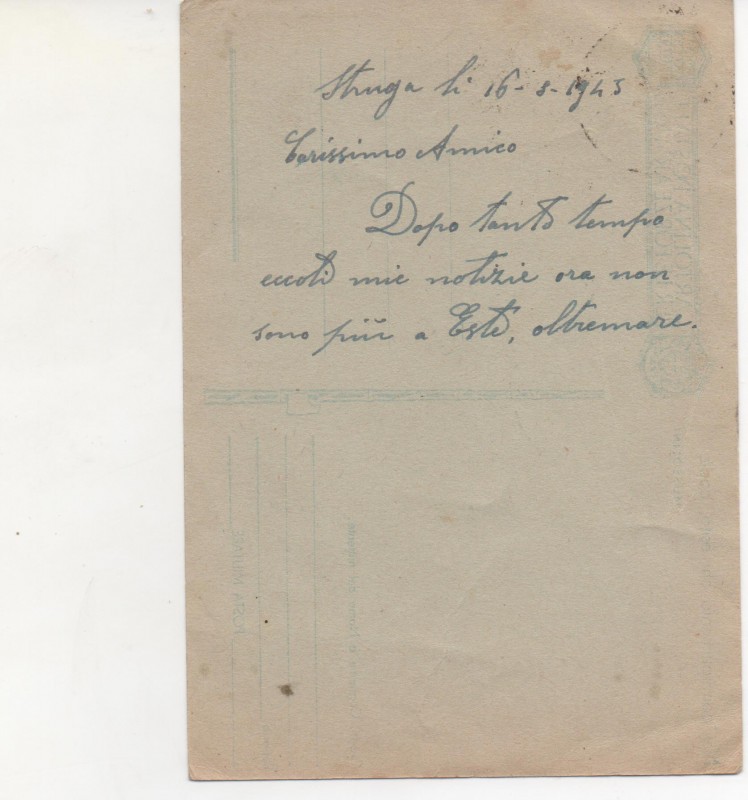 Struga li 16-8-1943
Carissimo Amico
Dopo tanto tempo
eccoti mie notizie ora non
sono più a Este, oltremare.
POSTA MILITARE